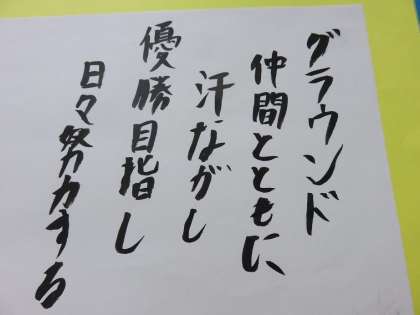 グラウンド
仲間とともに、
汗ながし
優勝目指し
日々努力する